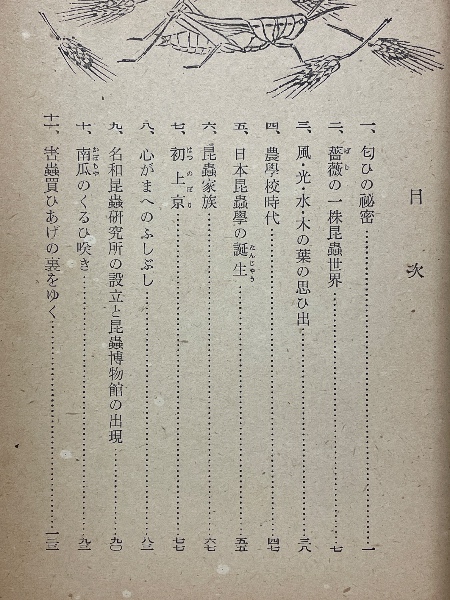 目次
一、匂ひの祕密……一
二、薔薇の一株昆蟲世界……七
三、風・光・水・木の葉の思ひ出……三八
四、農學校時代……四七
五、日本昆蟲學の誕生……五五
六、昆蟲家族……六七
七、初上京……七七
八、心がまへのふしぶし……八三
九、名和昆蟲研究所の設立と昆蟲博物館の出現……九〇
十、南瓜のくるひ咲き……九三
十一、害蟲買ひあげの裏をゆく……